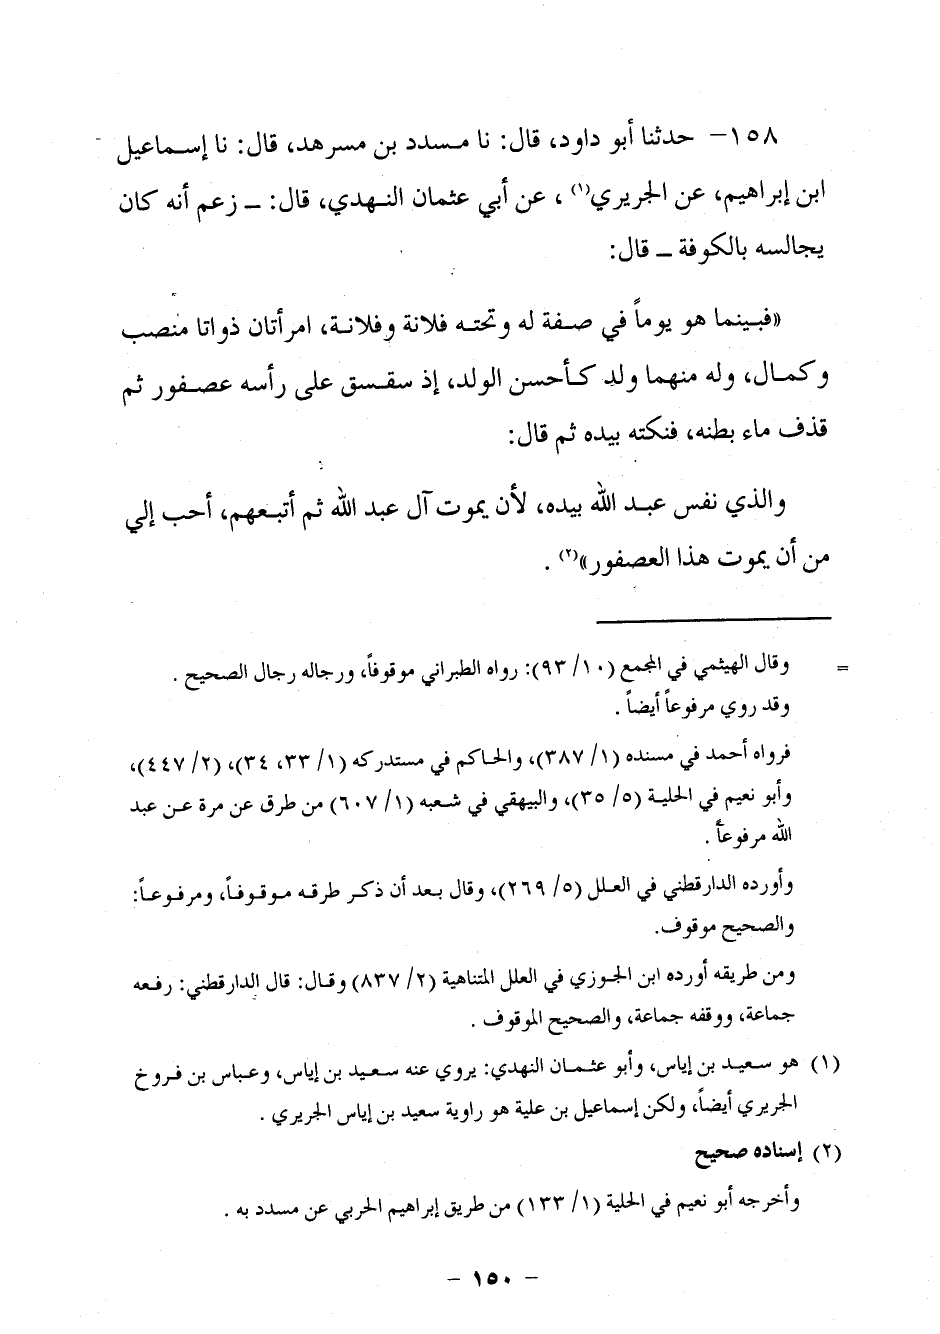 ١٥٨- حدثنا أبو داود، قال: نا مسدد بن مسرهد، قال: نا إسماعيل
ابن إبراهيم، عن الجريري(١)، عن أبي عثمان النهدي، قال: ـ زعم أنه كان
يجالسه بالكوفة ـ قال:
«فبينما هو يوماً في صفة له وتحته فلانة وفلانة، امرأتان ذواتا منصب
وكمال، وله منهما ولد كأحسن الولد، إذ سقسق على رأسه عصفور ثم
قذف ماء بطنه، فنكته بيده ثم قال:
والذي نفس عبد الله بيده، لأن يموت آل عبد الله ثم أتبعهم، أحب إلي
من أن يموت هذا العصفور»(٢).
= وقال الهيثمي في المجمع (١٠/ ٩٣): رواه الطبراني موقوفاً، ورجاله رجال الصحيح.
وقد روي مرفوعاً أيضاً.
فرواه أحمد في مسنده (١/ ٣٨٧)، والحاكم في مستدركه (١/ ٣٣، ٣٤)، (٢/ ٤٤٧)،
وأبو نعيم في الحلية (٥/ ٣٥)، والبيهقي في شعبه (١/ ٦٠٧) من طرق عن مرة عن عبد
الله مرفوعاً.
وأورده الدارقطني في العلل (٥/ ٢٦٩)، وقال بعد أن ذكر طرقه موقوفاً، ومرفوعاً:
والصحيح موقوف.
ومن طريقه أورده ابن الجوزي في العلل المتناهية (٢/ ٨٣٧) وقال: قال الدارقطني: رفعه
جماعة، ووقفه جماعة، والصحيح الموقوف.
(١) هو سعيد بن إياس، وأبو عثمان النهدي: يروي عنه سعيد بن إياس، وعباس بن فروخ
الجريري أيضاً، ولكن إسماعيل بن علية هو راوية سعيد بن إياس الجريري.
(٢) إسناده صحيح
وأخرجه أبو نعيم في الحلية (١/ ١٣٣) من طريق إبراهيم الحربي عن مسدد به.
- ١٥٠ -